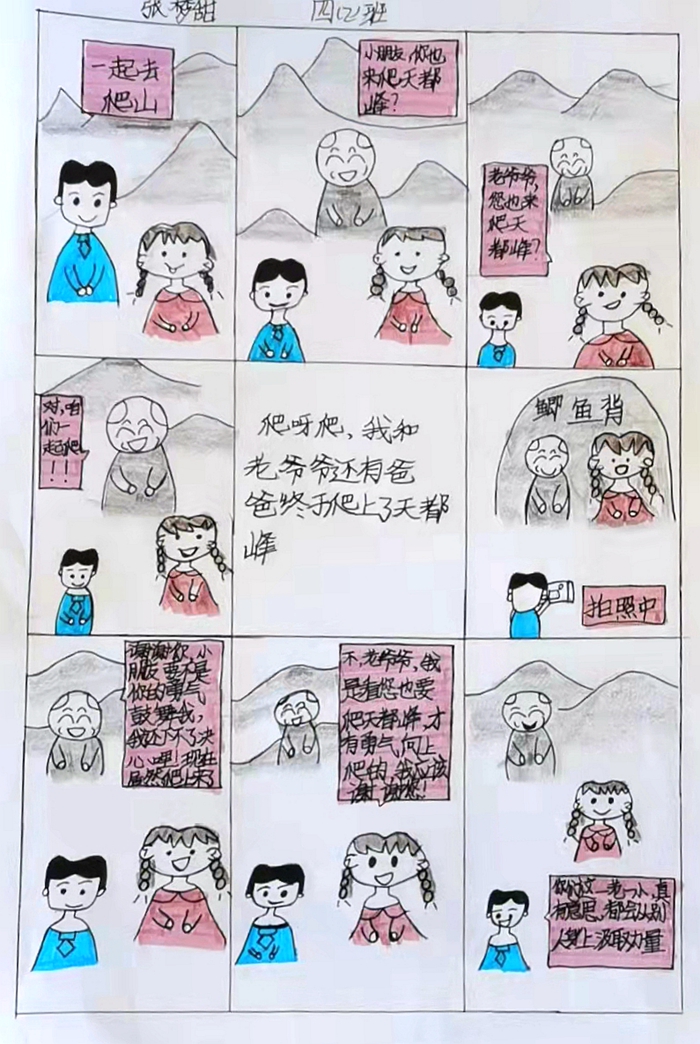 张梦甜 四(2)班
一起去
爬山
小朋友,你也
来爬天都
峰?
老爷爷,
您也来
爬天
都峰?
对,咱
们一
起爬
!!
爬呀爬,我和
老爷爷还有爸
爸终于爬上了天都
峰
鲫鱼背
拍照中
谢谢你,小
朋友要不是
你的勇气
鼓舞我,
我还下不了决
心哩!现在
居然爬上来了
不,老爷爷,我
是看您也要
爬天都峰,才
有勇气向上
爬的,我应该
谢谢您!
你们这一老一小真
有意思,都会从别
人身上汲取力量